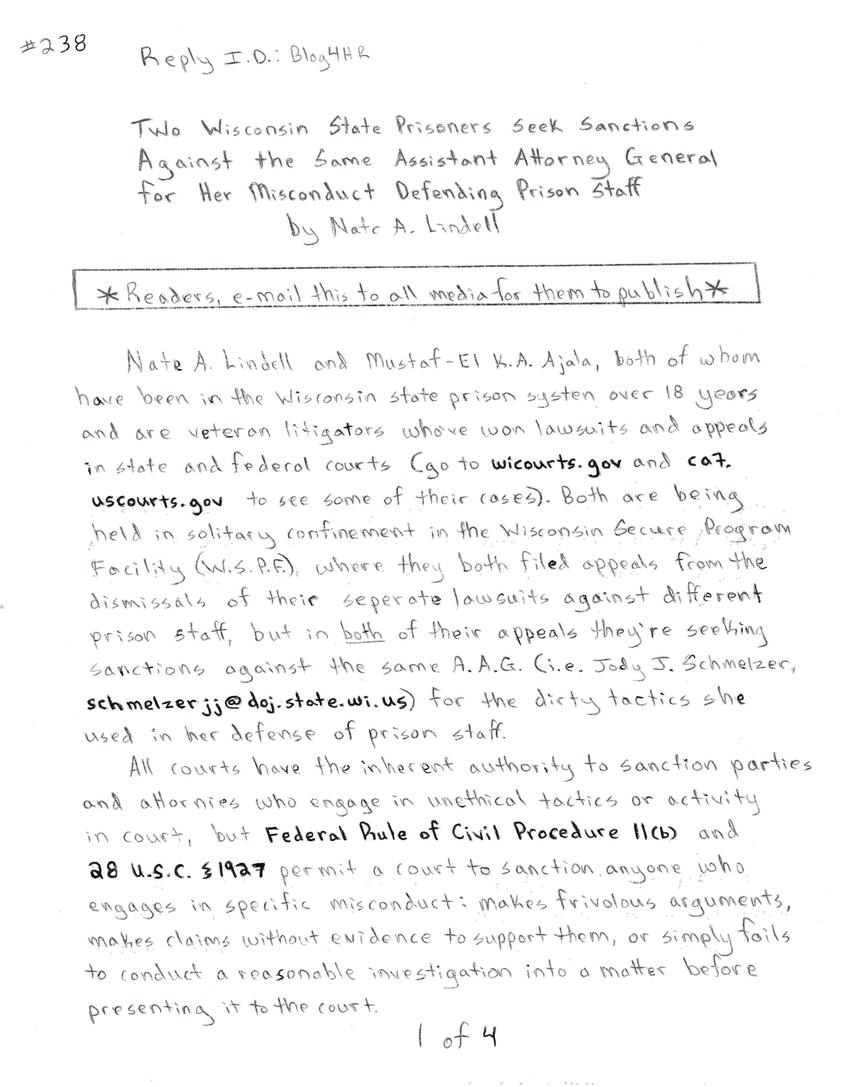 #238
Reply I.D.: Blog4HR
Two Wisconsin State Prisoners Seek Sanctions
Against the Same Assistant Attorney General
for Her Misconduct Defending Prison Staff
by Nate A. Lindell
*Readers, e-mail this to all media for them to publish*
Nate A. Lindell and Mustaf-El K.A. Ajala, both of whom
have been in the Wisconsin state prison systen over 18 years
and are veteran litigators who've won lawsuits and appeals
in state and federal courts (go to wicourts.gov and ca7.
uscourts.gov to see some of their cases). Both are being
held in solitary confinement in the Wisconsin Secure Program
Facility (W.S.P.F.), where they both filed appeals from the
dismissals of their seperate lawsuits against different
prison staff, but in both of their appeals they're seeking
sanctions against the same A.A.G. (i.e. Jody J. Schmelzer,
schmelzerjj@doj.state.wi.us) for the dirty tactics she
used in her defense of prison staff.
All courts have the inherent authority to sanction parties
and attornies who engage in unethical tactics or activity
in court, but Federal Rule of Civil Procedure 11(b) and
28 U.S.C. §1927 permit a court to sanction anyone who
engages in specific misconduct: makes frivolous arguments,
makes claims without evidence to support them, or simply fails
to conduct a reasonable investigation into a matter before
presenting it to the court.
1 of 4